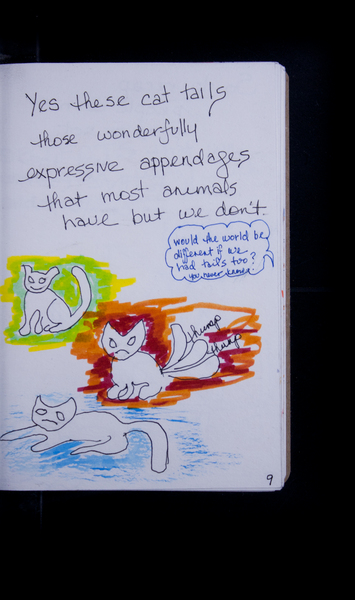 Yes these cat tails
those wonderfully
expressive appendages
that most animals
have but we don't.
would the world be
different if we
had tails too?
you never know.
thump
thump
9